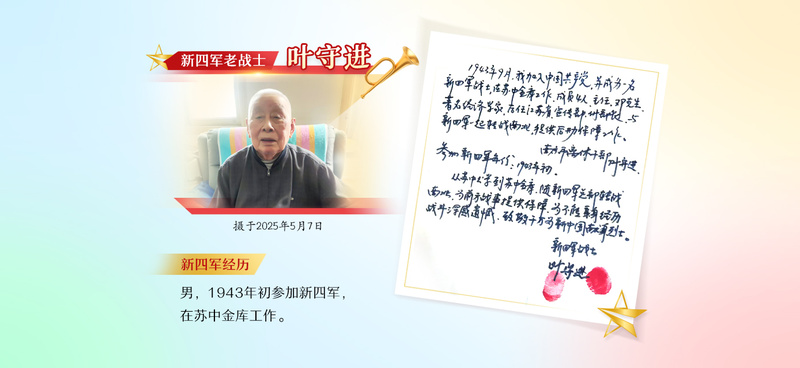 新四军老战士 叶守进
摄于2025年5月7日
新四军经历
男，1943年初参加新四军，
在苏中金库工作。
1943年9月，我加入中国共产党，并成为一名
新四军战士，在苏中金库工作，成员4人，主任，邓克生，
著名经济学家，
新四军一起转战南北，提供后勤保障工作。
南京市离休干部叶守进
参加新四军年份：1943年初。
从苏中 到苏中金库，随新四军总部转战
南北，为前方战事提供保障，为不能亲临
战斗深感遗憾，致敬 为新中国
新四军战士
叶守进